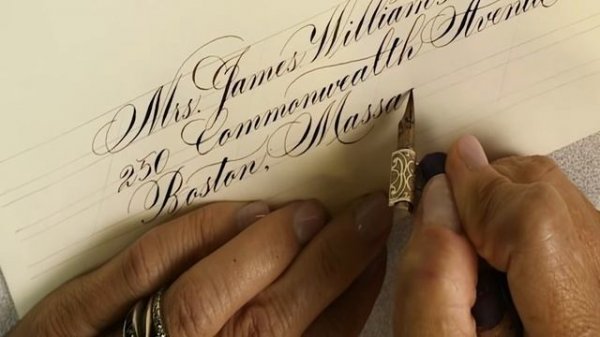 Mrs. James Williams
250 Commonwealth Avenue
Boston, Massa